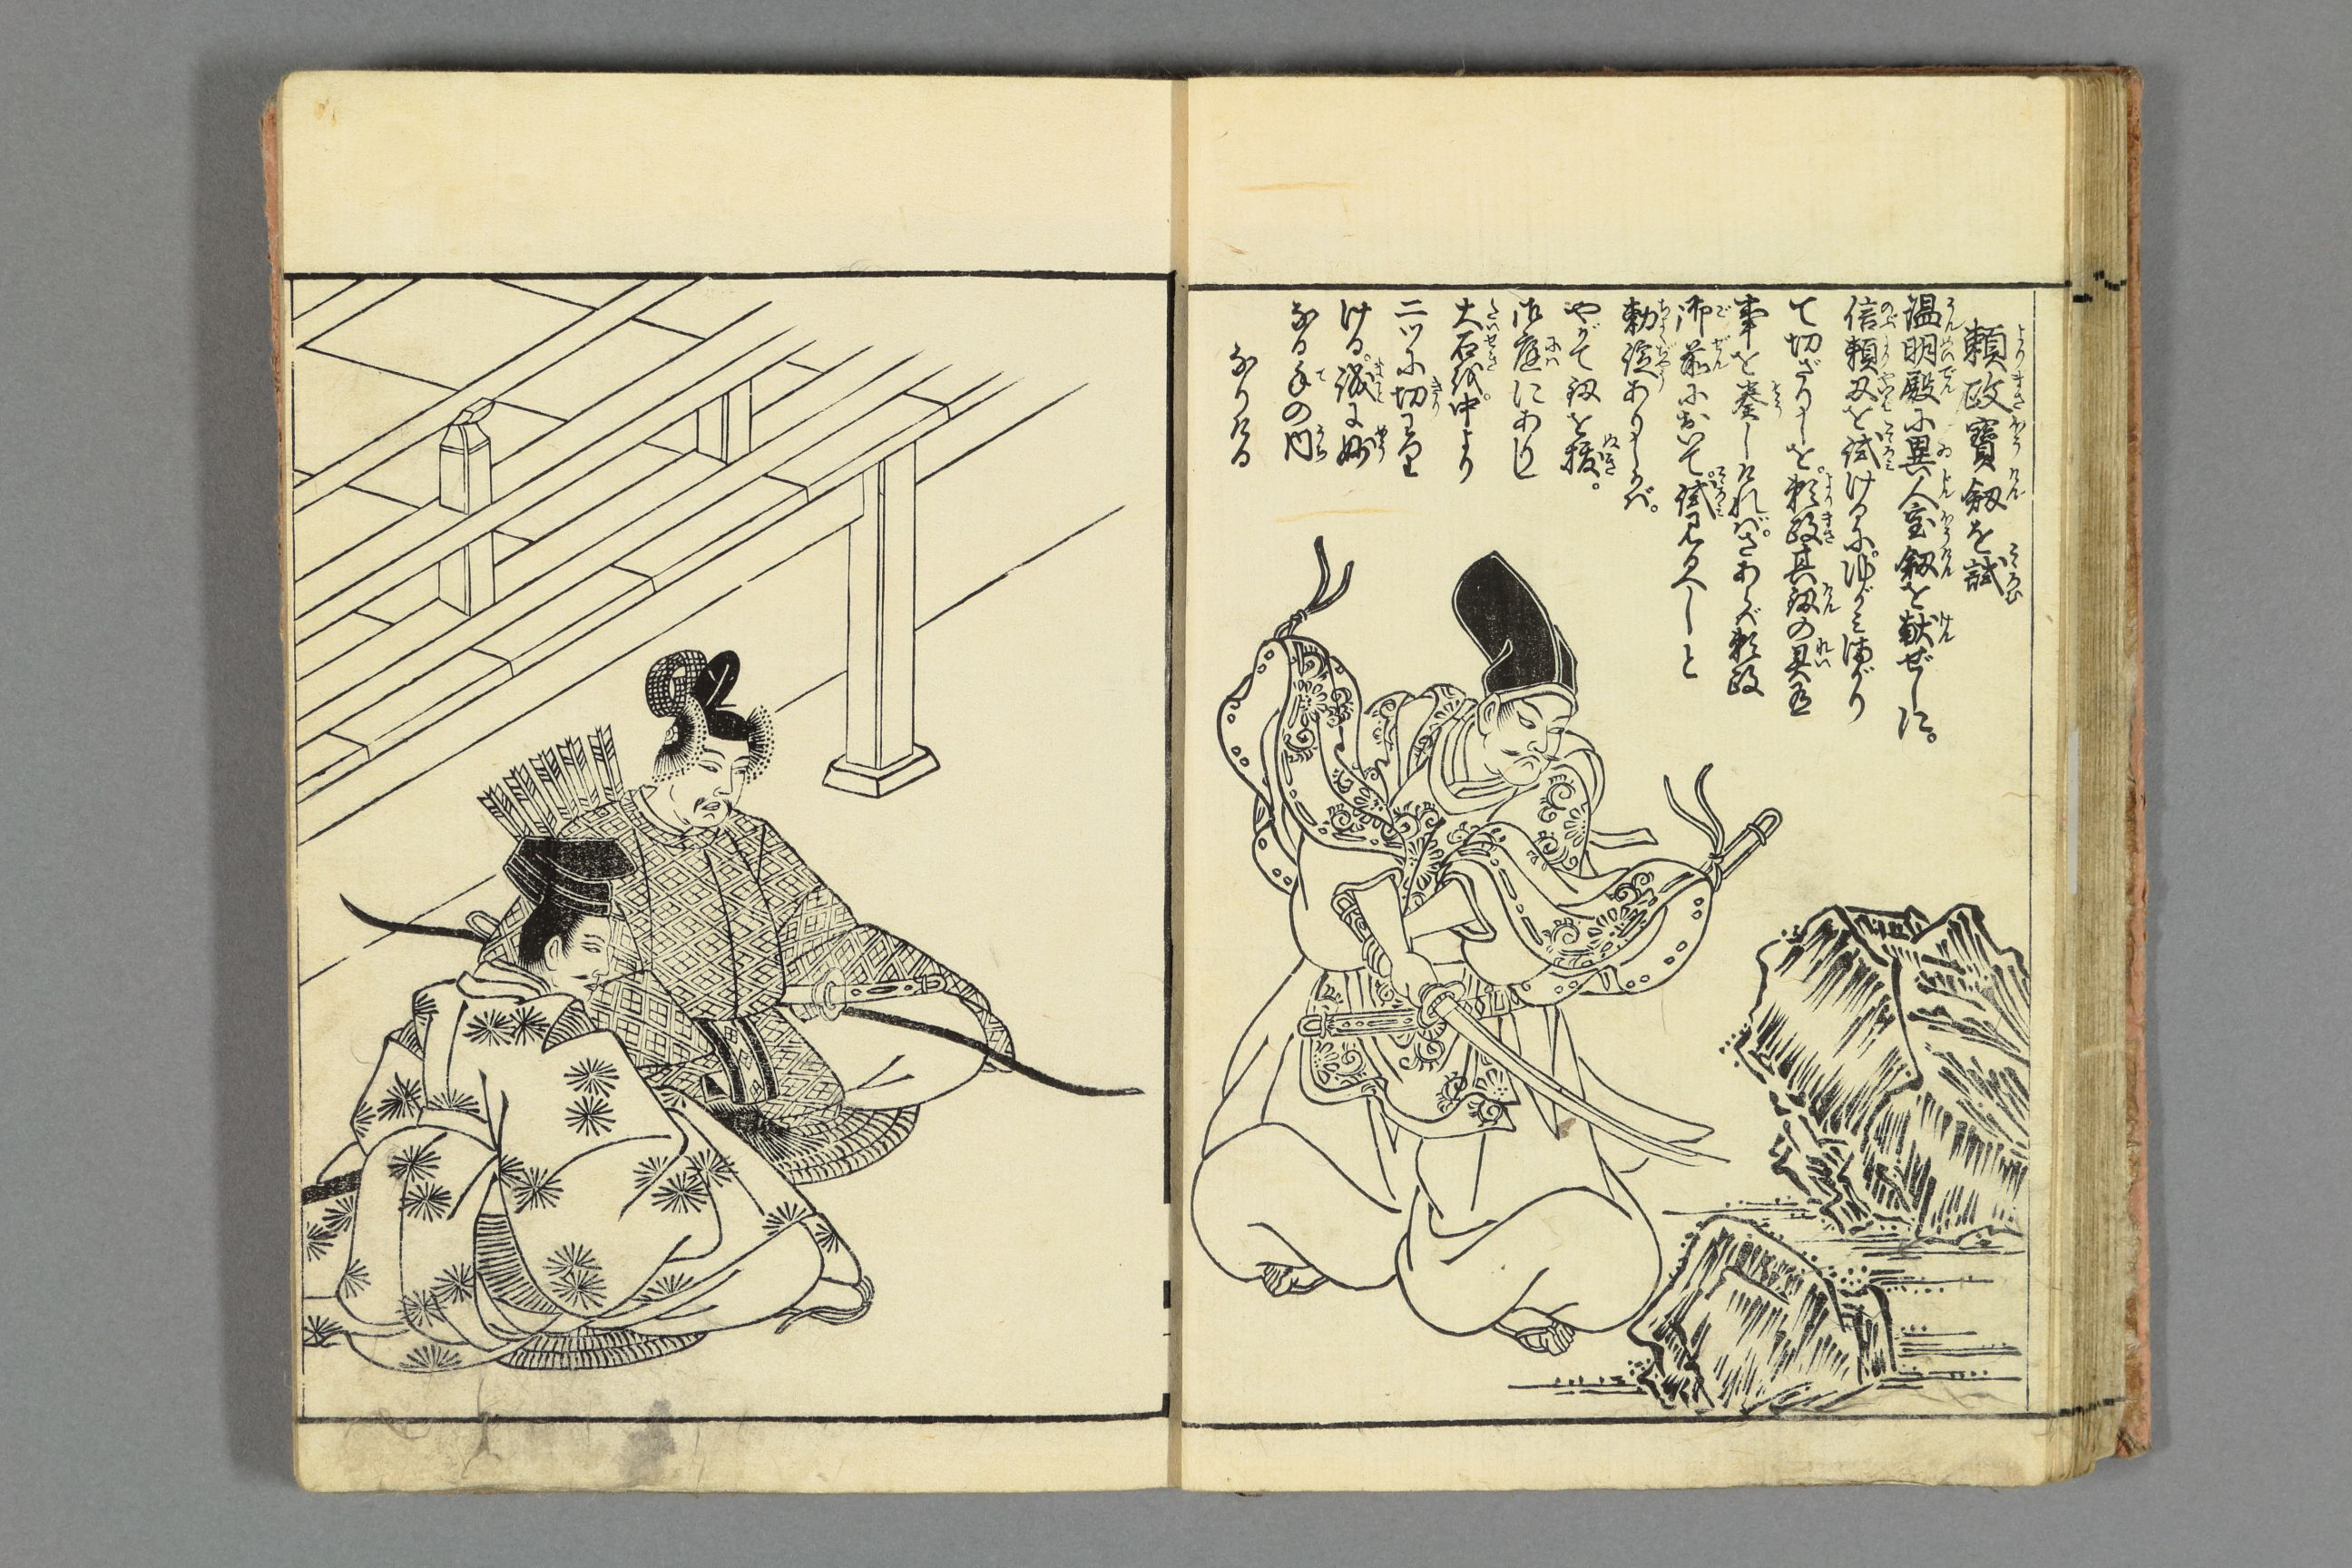 頼政寶剱を試
温明殿に異人宝剱を献ぜしに。
信頼刄を試けるに。ゆがみ曲がり
て切ざりしを。頼政其剱の具
事を奏しければ。さあらば頼政
御前において。試見るべしと
勅諚ありしかば。
やがて剱を抜。
御庭にありし
大石を。中より
二ツに切
ける。誠に妙
なる手の内
なりける